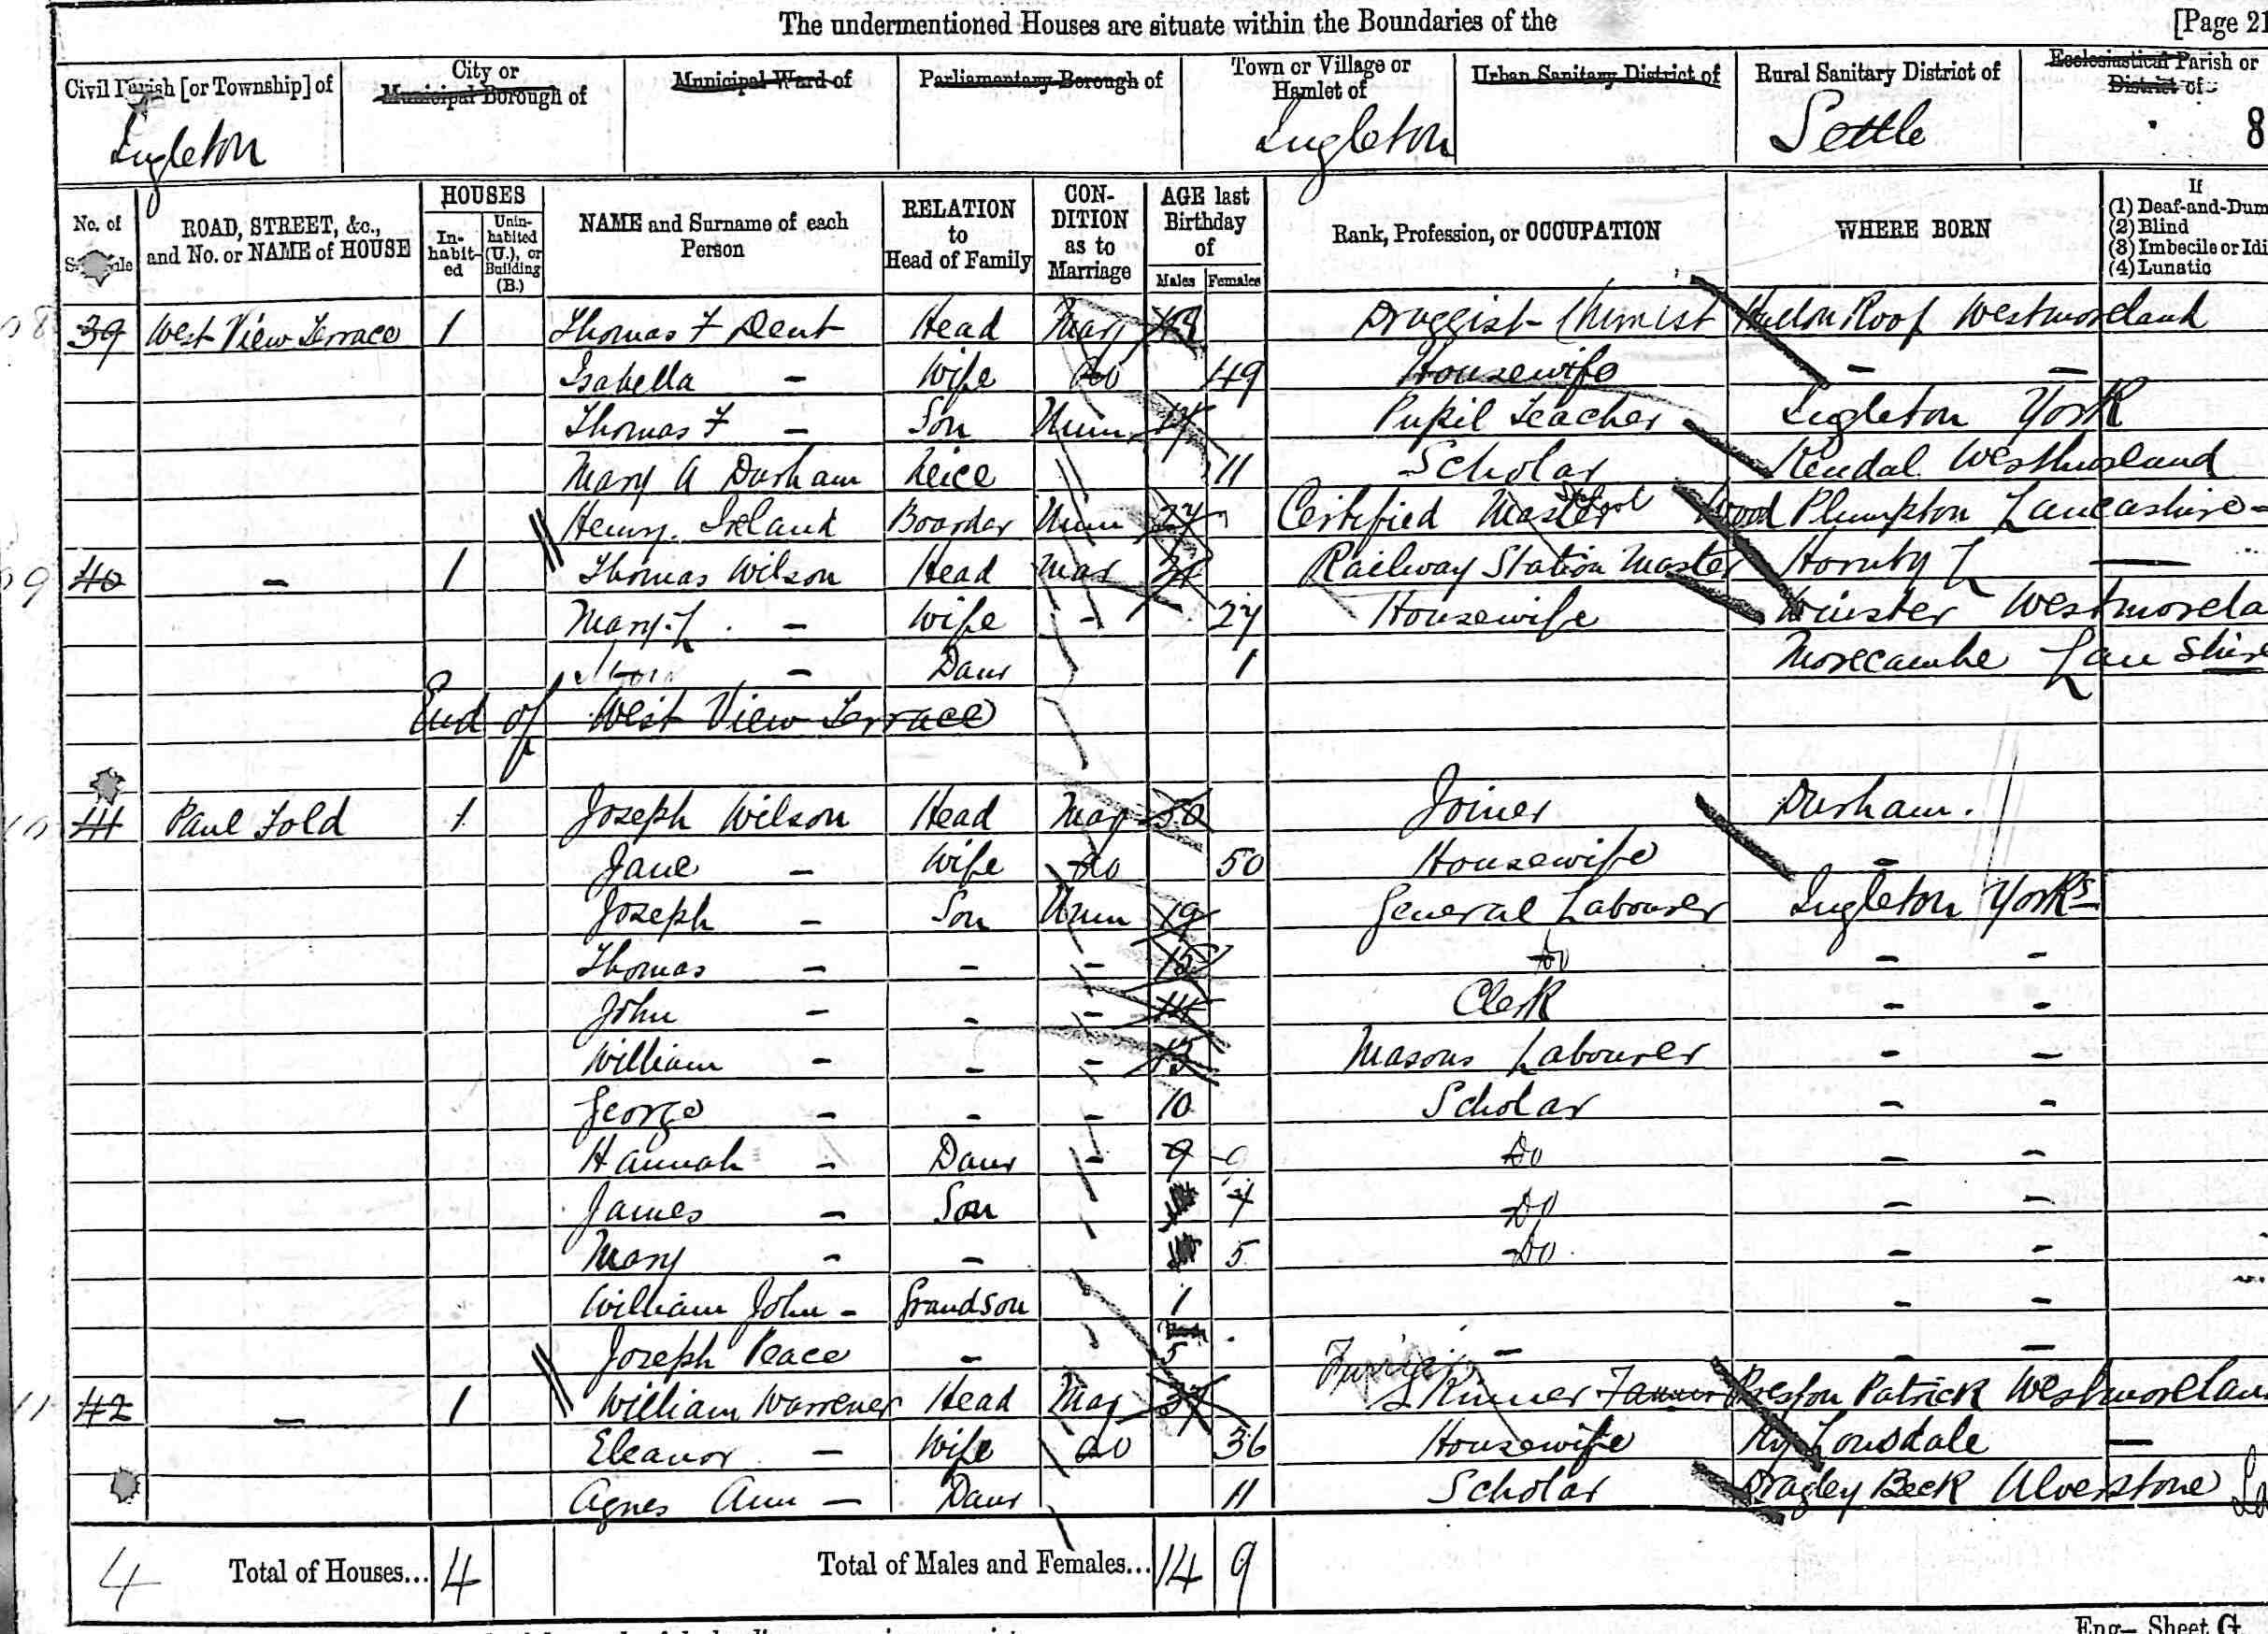 The undermentioned Houses are situate within the Boundaries of the [Page 21
Civil Parish [or Township] of City or Municipal Borough of Municipal Ward of Parliamentary Borough of Town or Village or Hamlet of Urban Sanitary District of Rural Sanitary District of Ecclesiastical Parish or District of
Ingleton Ingleton Settle 8
No. of Schedule ROAD, STREET, &c., and No. or NAME of HOUSE HOUSES Inhabited Uninhabited (U.), or Building (B.) NAME and Surname of each Person RELATION to Head of Family CONDITION as to Marriage AGE last Birthday of Males Females Rank, Profession, or OCCUPATION WHERE BORN If (1) Deaf-and-Dum (2) Blind (3) Imbecile or Idi (4) Lunatic
39 West View Terrace 1 Thomas F Dent Head Mar Druggist-Chimist Hutton Roof Westmoreland
Isabella - Wife do 49 Housewife - -
Thomas F - Son Unm Pupil Teacher Ingleton York
Mary A Durham Neice 11 Scholar Kendal Westmoreland
Henry Ireland Boarder Unm Certified School Master Wood Plumpton Lancashire
40 - 1 Thomas Wilson Head Mar Railway Station Master Hornby L -
Mary L - Wife - 27 Housewife Winster Westmorela
- Daur 1 Morecambe Lan Shire
End of West View Terrace
41 Paul Fold 1 Joseph Wilson Head Mar 50 Joiner Durham.
Jane - Wife do 50 Housewife -
Joseph - Son Unm 19 General Labourer Ingleton Yorks
Thomas - - - 15 do - -
John - - - 14 Clerk - -
William - - - 13 Masons Labourer - -
George - - - 10 Scholar - -
Hannah - Daur - 9 9 Do - -
James - Son - 7 Do - -
Mary - - 5 Do - -
William John - Grandson 1 - -
Joseph Peace - 5 - - -
42 - 1 William Warrener Head Mar 37 Skinner Tanner Preston Patrick Westmorelan
Eleanor - Wife do 36 Housewife Ky Lonsdale -
Agnes Ann - Daur 11 Scholar Dragley Beck Ulverstone La
4 Total of Houses... 4 Total of Males and Females... 14 9
Eng- Sheet G